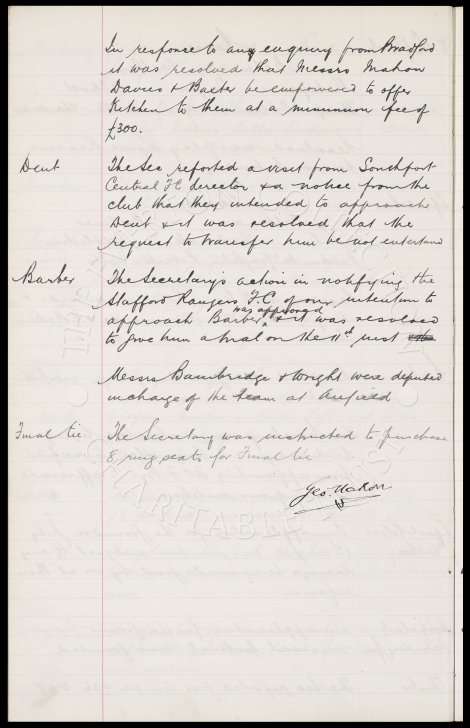 In response to any enquiry from Bradford
it was resolved that Messrs Mahon
Davies & Baxter be empowered to offer
Kitchen to them at a minimum fee of
£300.
Dent The Sec reported a visit from Southport
Central FC director & a notice from the
club that they intended to approach
Dent & it was resolved that the
request to transfer him be not entertained
Barber The Secretary's action in notifying the
Stafford Rangers FC of our intention to
approach Barber was approved & it was resolved
to give him a trial on the 11th inst
Messrs Bainbridge & Wright were deputed
in charge of the team at Anfield
Final tie The Secretary was instructed to purchase
8 ring seats for Final tie
Geo. Mahon
CHARITABLE